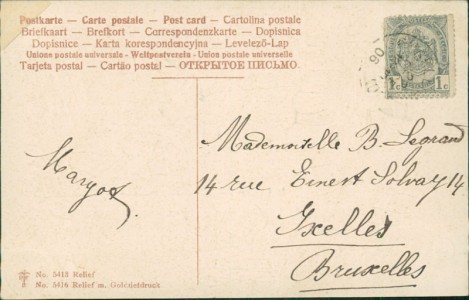 Postkarte – Carte postale – Post card – Cartolina postale
Briefkaart – Brefkort – Correspondenzkarte – Dopisnica
Dopisnice – Karta korespondencyjna – Levelező-Lap
Unione postale universale - Weltpostverein - Union postale universelle
Tarjeta postal – Cartão postal – ОТКРЫТОЕ ПИСЬМО.
1c 1c
Mademoiselle B. Legrand
14 rue Ernest Solvay 14
Ixelles
Bruxelles
Margot
No. 5418 Relief
No. 5416 Relief m. Golddruck